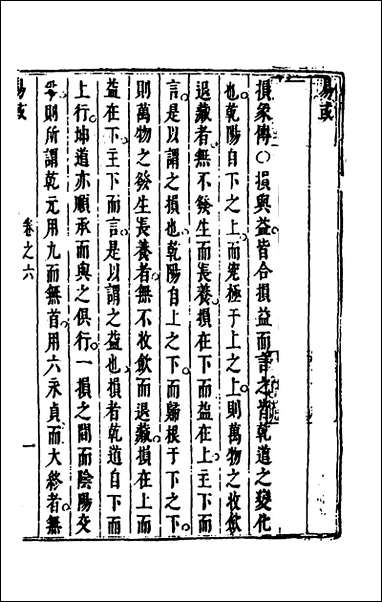 易或
損彖傳○損與益皆合損益而言之皆乾道之變化
也乾陽自下之上而究極于上之上則萬物之收斂
退藏者無不發生而長養損在下而益在上主下而
言是以謂之損也乾陽自上之下而歸根于下之下
則萬物之發生長養者無不收斂而退藏損在上而
益在下主下而言是以謂之益也損者乾道自下而
上行坤道亦順承而與之俱行一損之間而陰陽交
則所謂乾元用九而無首用六永貞而大終者無
易或
卷之六
一